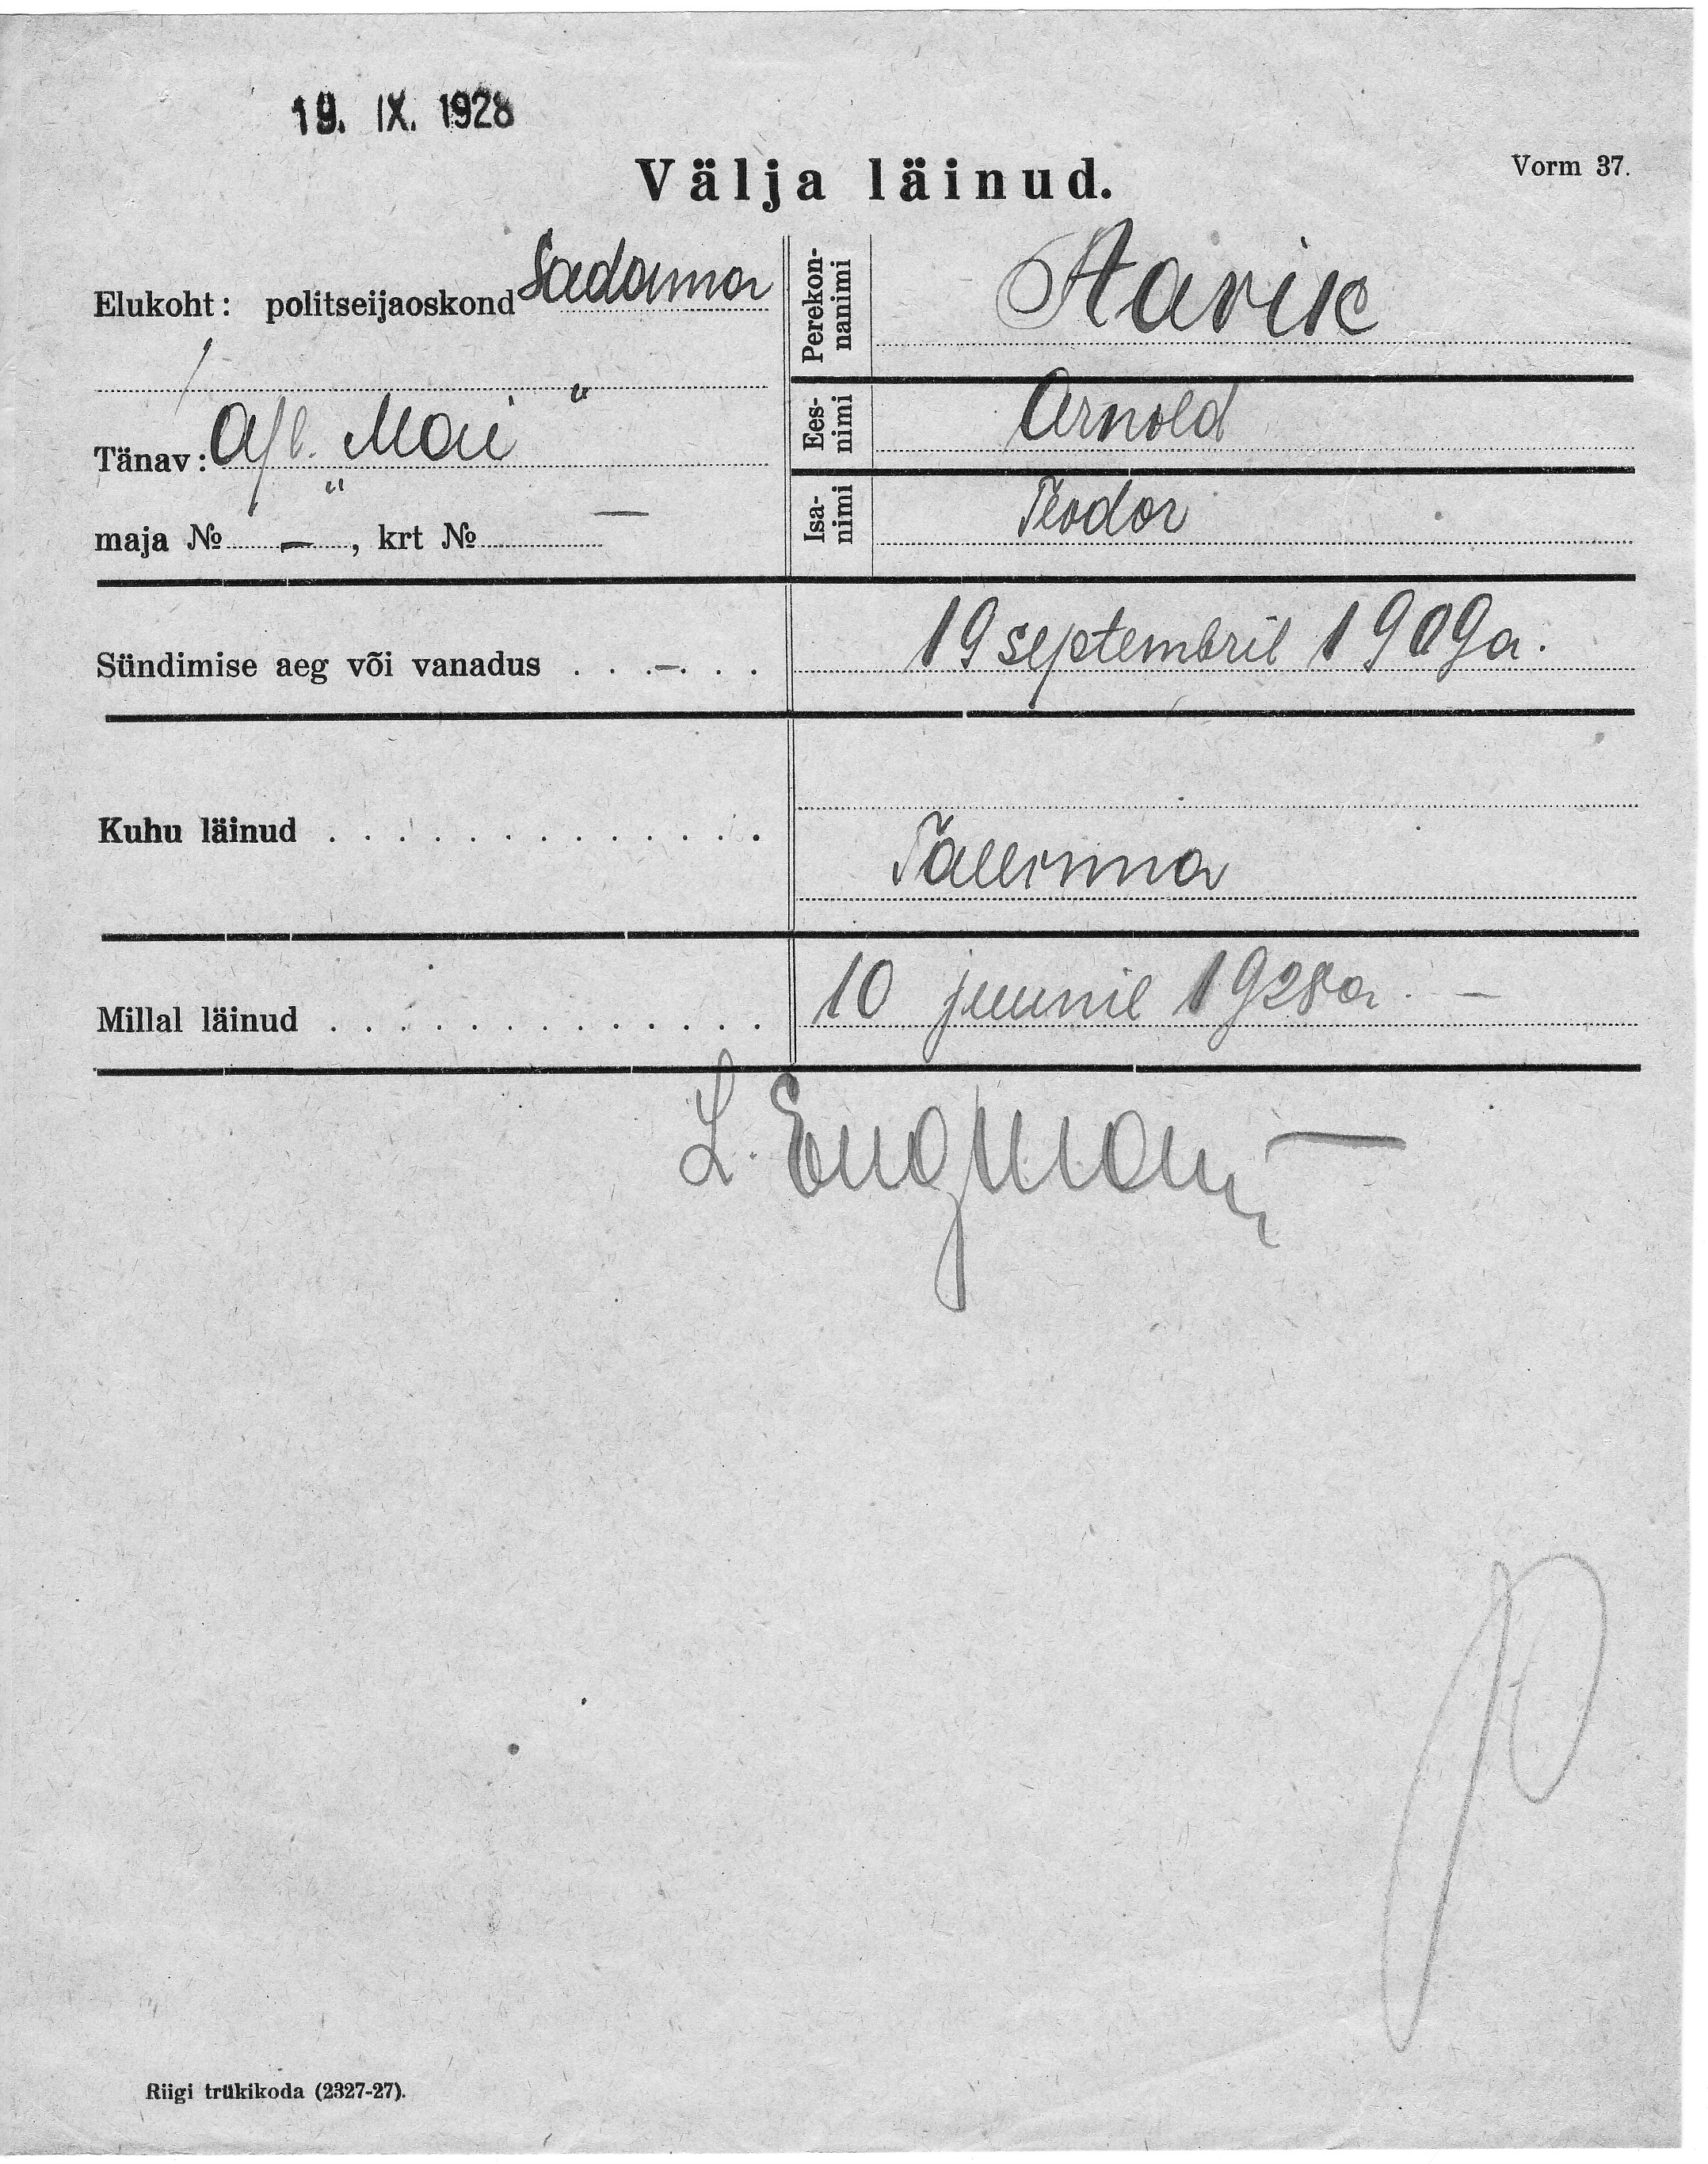 19. IX. 1928
Välja läinud.
Vorm 37.
Elukoht: politseijaoskond Sadama
Tänav: A/l. "Mai"
maja № – , krt № –
Perekonnanimi Aavik
Eesnimi Arnold
Isanimi Teodor
Sündimise aeg või vanadus . . . – . . . 19 septembril 1909 a.
Kuhu läinud . . . . . . . . . . . . . Tallinna
Millal läinud . . . . . . . . . . . . . 10 juunil 1928 a. –
L. Engman
Riigi trükikoda (2327-27).